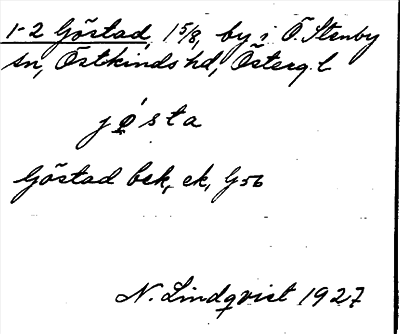 1-2 Göstad, 15/8, by i Ö. Stenby
sn, Östkinds hd, Österg. l
jǿsta
Göstad bek, ek, G56
N. Lindqvist 1927